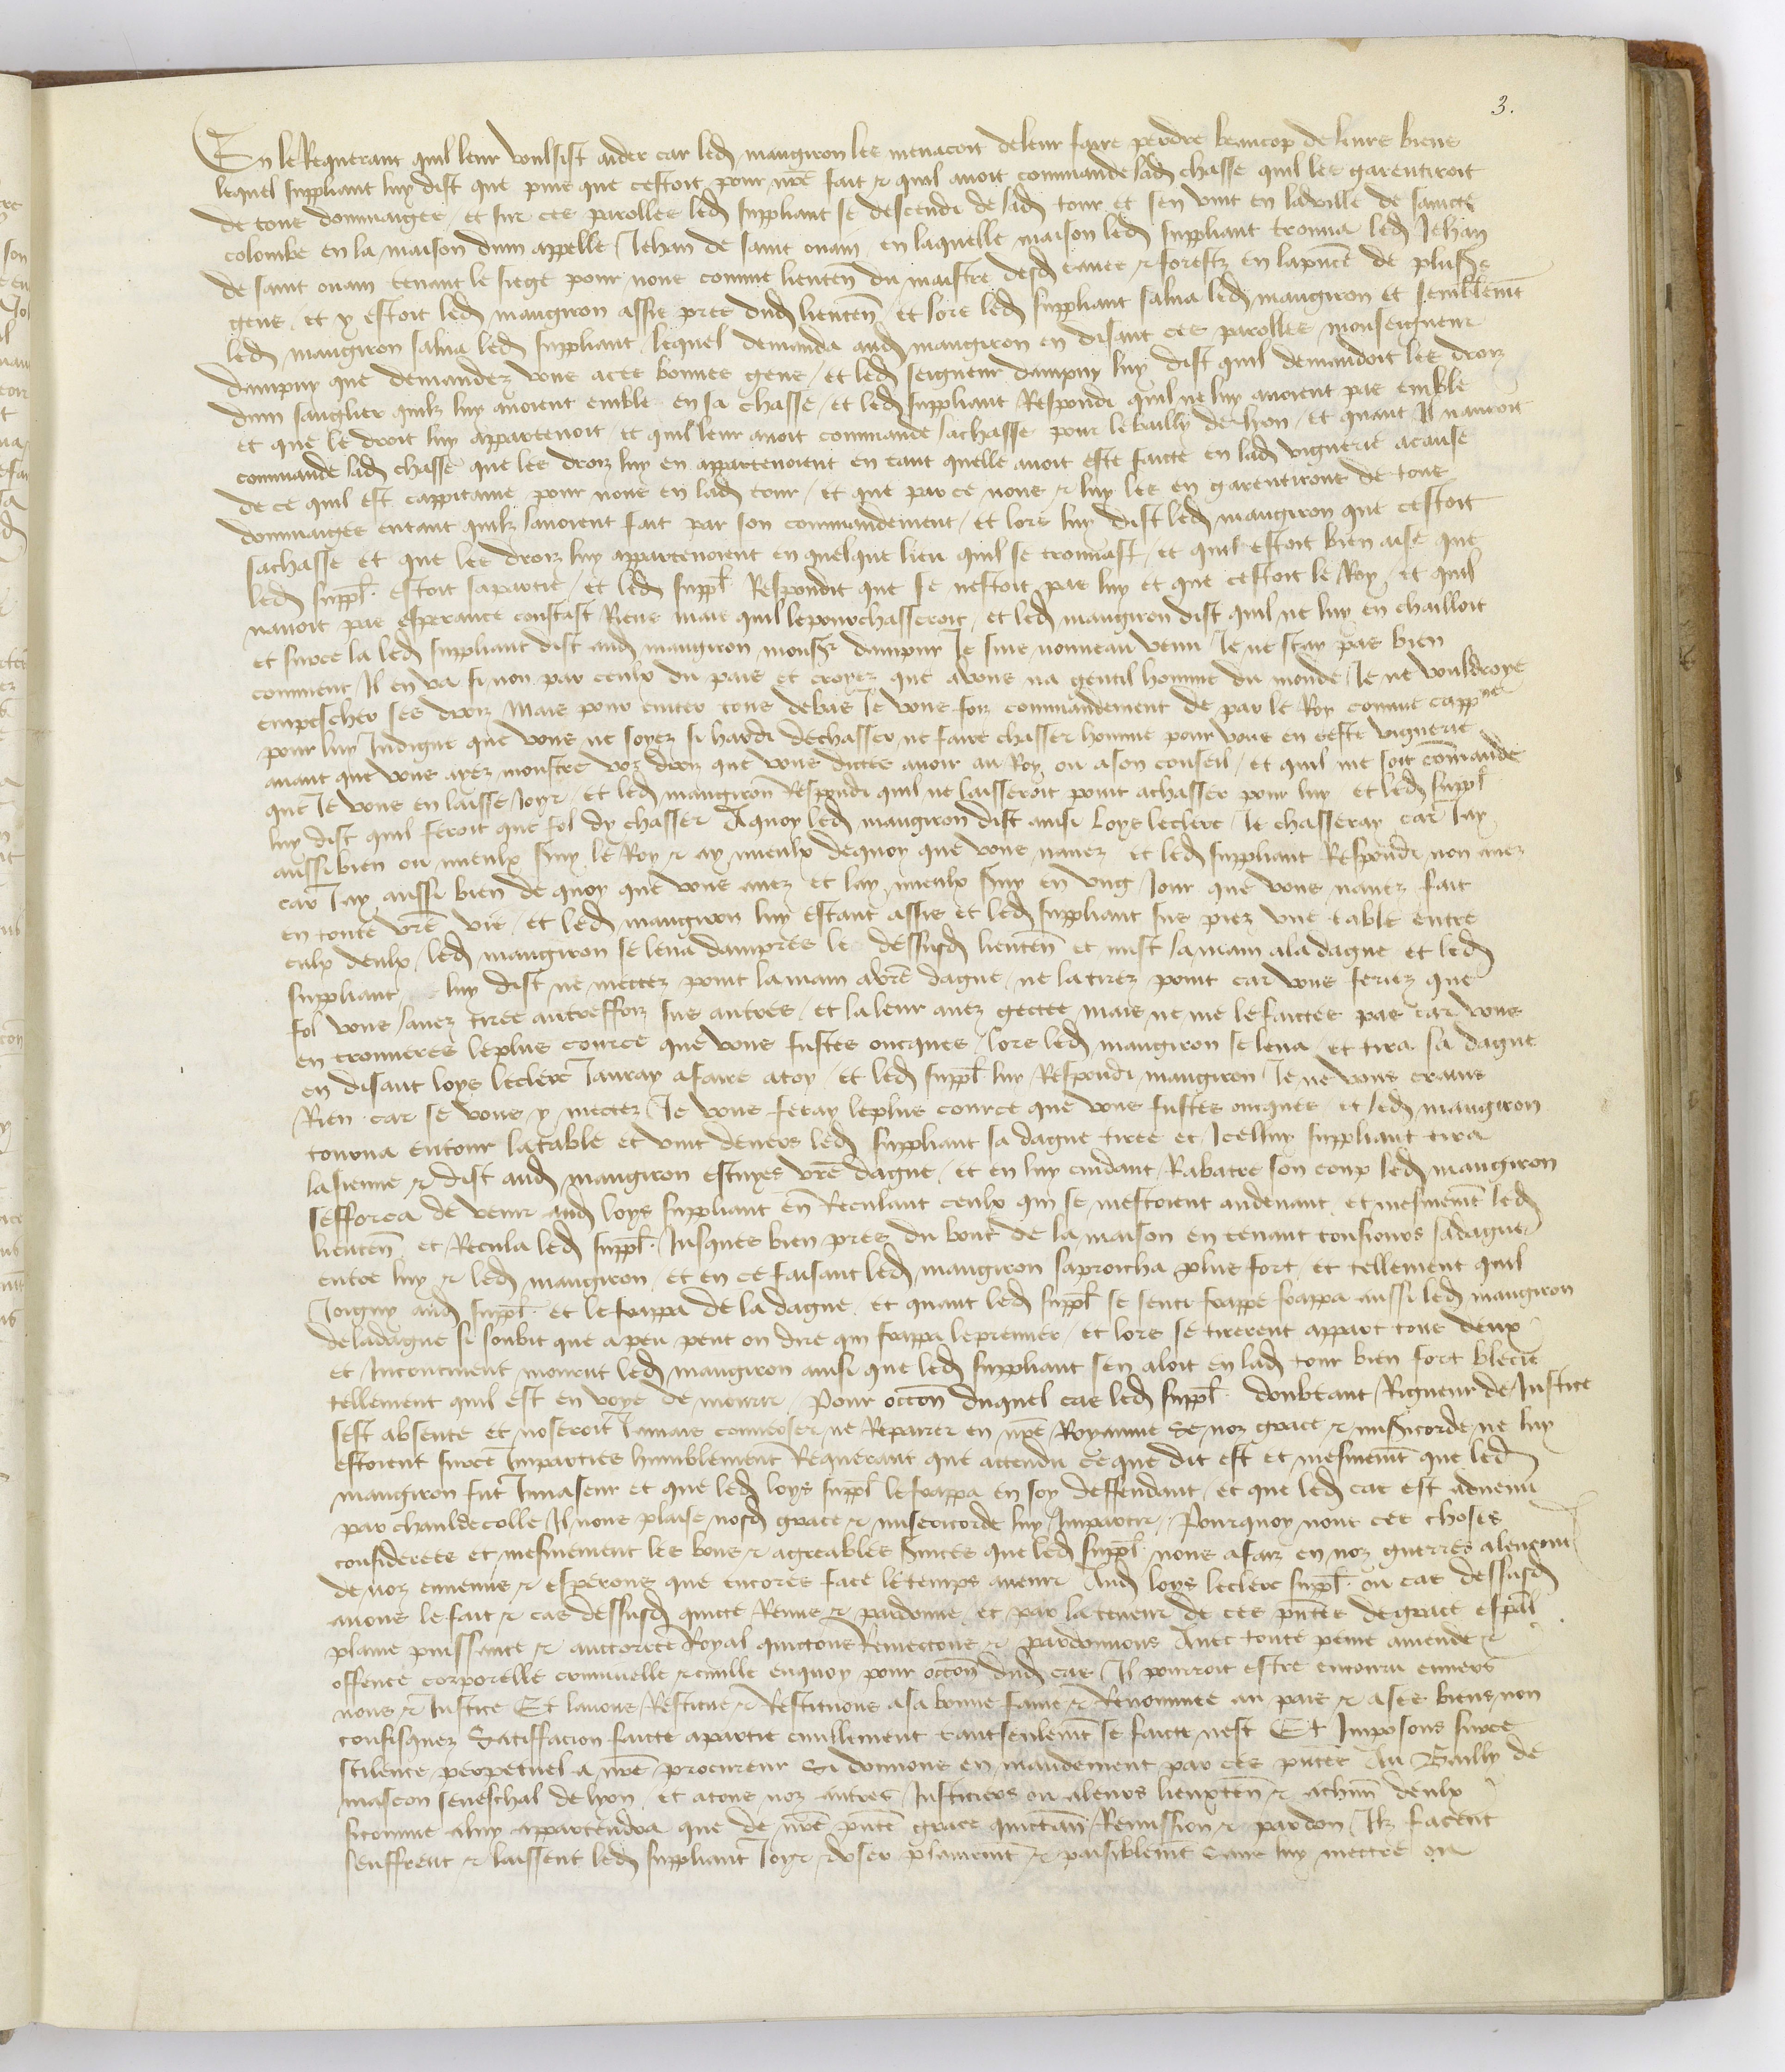 3.
En le Requerant quil leur voulsist aider car led maugiron les menacoit de leur faire perdre beaucop de leurs biens
lequel suppliant luy dist que puis que cestoit pour nre fait & quil avoit commande lad chasse quil les garentiroit
de tous dommaiges et sur ces parolles led suppliant se descendi de lad tour et sen vint en la ville de saincte
colombe en la maison dun appelle Jehan de saint ouain en laquelle maison led suppliant trouva led Jehan
de saint ouain tenant le siege pour nous comme lieuten du maistre desd eaues & forestz en la pnce de plusrs
gens et y estoit led maugiron assis pres dud lieuten et lors led suppliant salua led maugiron et semblemt
led maugiron salua led suppliant lequel demanda aud maugiron en disant ces parolles monseigneur
dampuy que demandez vous a ces bonnes gens et led seigneur dampuy luy dist quil demandoit les droiz
dun sanglier quilz luy avoient emble en sa chasse et led suppliant Respondi quil ne luy avoient pas emble
et que le droit luy appartenoit et quil leur avoit commande sa chasse pour le bailly de lion et quant Il nauroit
commande lad chasse que les droiz luy en appartenoient en tant quelle avoit este faicte en lad viguerie a cause
de ce quil est cappitaine pour nous en lad tour et que par ce nous & luy les en garentirons de tous
dommaiges entant quilz lavoient fait par son commandement et lors luy dist led maugiron que cestoit
sa chasse et que les droiz luy appartenoient en quelque lieu quil se trouvast et quil estoit bien aise que
led suppl estoit sa partie et led suppl Respondit que se nestoit pas luy et que cestoit le Roy et quil
navoit pas esperance coustast Riens mais quil le pourchasseroit et led maugiron dist quil ne luy en chailloit
et sur ce la led suppliant dist aud maugiron monsr dampuy Je suis nouveau venu Je ne scay pas bien
comment Il en va si non par ceulx du pais et croyez que a vous na gentil homme du monde Je ne vouldroye
empescher ses droiz Mais pour eviter tous debas Je vous foiz commandement de par le Roy comme cappne
pour luy Indigne que vous ne soyez si hardi de chasser ne faire chasser homme pour vous en ceste viguerie
avant que vous ayez monstre voz droiz que vous dictes avoir au Roy ou a son conseil et quil me soit commande
que Je vous en laisse Joyr et led maugiron Respondi quil ne laisseroit point a chasser pour luy et led suppl
luy dist quil feroit que fol dy chasser A quoy led maugiron dist ainsi Loys leclerc Je chasseray car Jay
aussi bien ou mieulx sruy le Roy & ay mieulx de quoy que vous navez et led suppliant Respondi non avez
car Jay aussi bien de quoy que vous avez et lay mieulx sruy en ung Jour que vous navez fait
en toute vre vie et led maugiron luy estant assis et led suppliant sus piez une table entre
eulx deulx led maugiron se leva dampres le dessusd lieuten et mist la main a la dague et led
suppliant luy dist ne mectez point la main a vre dague ne la tirez point car vous feriez que
fol vous lavez tiree autreffoiz sus autres et la leur avez gectee mais ne me le faictes pas car vous
en trouveres le plus cource que vous fustes oncques lors led maugiron se leva et tira sa dague
en disant loys leclerc Jauray a faire a toy et led suppl luy Respondi maugiron Je ne vous crains
Rien car se vous y mectez Je vous feray le plus cource que vous fustes oncques et led maugiron
tourna entour la table et vint devers led suppliant sa dague tiree et Icelluy suppliant tira
la sienne & dist aud maugiron estuyes vre dague et en luy cuidant Rabatre son coup led maugiron
sefforca de venir aud loys suppliant en Reculant ceulx qui se mectoient au devant et mesmemt led
lieuten et Recula led suppl Jusques bien pres du bout de la maison en tenant tousiours sa dague
entre luy & led maugiron et en ce faisant led maugiron saproucha plus fort et tellement quil
Joigny aud suppl et le frappa de la dague et quant led suppl se senti frappe frappa aussi led maugiron
de la dague si soubit que a peu peut on dire qui frappa le premier et lors se tirerent appart tous deux
et Incontinent mourut led maugiron ainsi que led suppliant sen aloit en lad tour bien fort blecie
tellement quil est en voye de mourir Pour occon duquel cas led suppl doubtant Rigueur de Justice
sest absente et noseroit Jamais converser ne Reparer en nre Royaume se noz grace & misricorde ne luy
estoient sur ce Imparties humblement Requerant que actendu ce que dit est et mesmemt que led
maugiron fut Invaseur et que led loys suppl le frappa en soy deffendant et que led cas est advenu
par chauldecolle Il nous plaise nosd grace & misericorde luy Impartir Pourquoy nous ces choses
considerees et mesmement les bons & agreables srvices que led suppl nous a faiz en noz guerres alencont
de noz ennemis & esperons que encores face le temps avenir Aud loys leclerc suppl ou cas dessusd
avons le fait & cas dessusd quicte Remis & pardonne et par la teneur de ces pntes de grace espal
plaine puissance & auctorite Royal quictons Remectons & pardonnons Avec toute peine amende &
offence corporelle criminelle & civille en quoy pour occon dud cas Il pourroit estre encouru envers
nous & Justice Et lavons Restitue & Restituons a sa bonne fame & Renommee au pais & a ses biens non
confisquez Satisfacion faicte a partie civillement tant seulemt se faicte nest Et Imposons sur ce
scilence perpetuel a nre procureur Si donnons en mandement par ces pntes Au Bailly de
mascon seneschal de lyon et a tous noz autres Justiciers ou a leurs lieuxten & a chun deulx
si comme a luy appartendra que de nre pnte grace quictan Remission & pardon Ilz facent
seuffrent & laissent led suppliant Joyr & user plainemt & paisiblemt Sans luy mectre ou